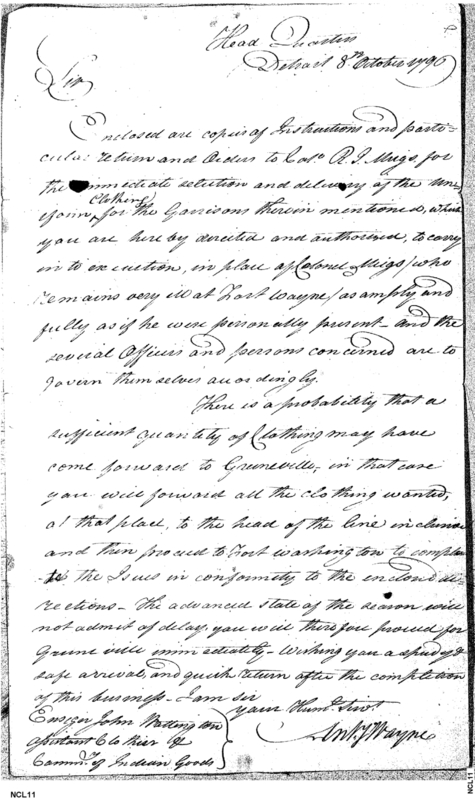 Head Quarters
Detroit 8th October 1796
Sir
Enclosed are copies of Instructions and parti-
cular return and Orders to Colo. R. J. Meigs, for
the immediate selection and delivery of the Uni-
Clothing
form, for the Garrisons therein mentioned, which
you are hereby directed and authorised, to carry
in to execution, in place of Colonel Meigs / who
remains very ill at Fort Wayne / as amply and
fully as if he were personally present - and the
several Officers and persons concerned are to
govern themselves accordingly.
There is a probability that a
sufficient quantity of Clothing may have
come forward to Greeneville, in that case
you will forward all the clothing wanted,
at that place, to the head of the line inclusive
and then proceed to Fort Washington to complete
the Issues in conformity to the enclosed di-
rections - the advanced state of the season will
not admit of delay. you will therefore proceed for
Greeneville immediately - Wishing you a speedy &
safe arrival, and quick return after the completion
of this business - I am sir
your Humb. Servt.
Ensign John Wallington
Assistant Clothier &
Commy. of Indian Goods
Anty. Wayne
NCL11
NCL11